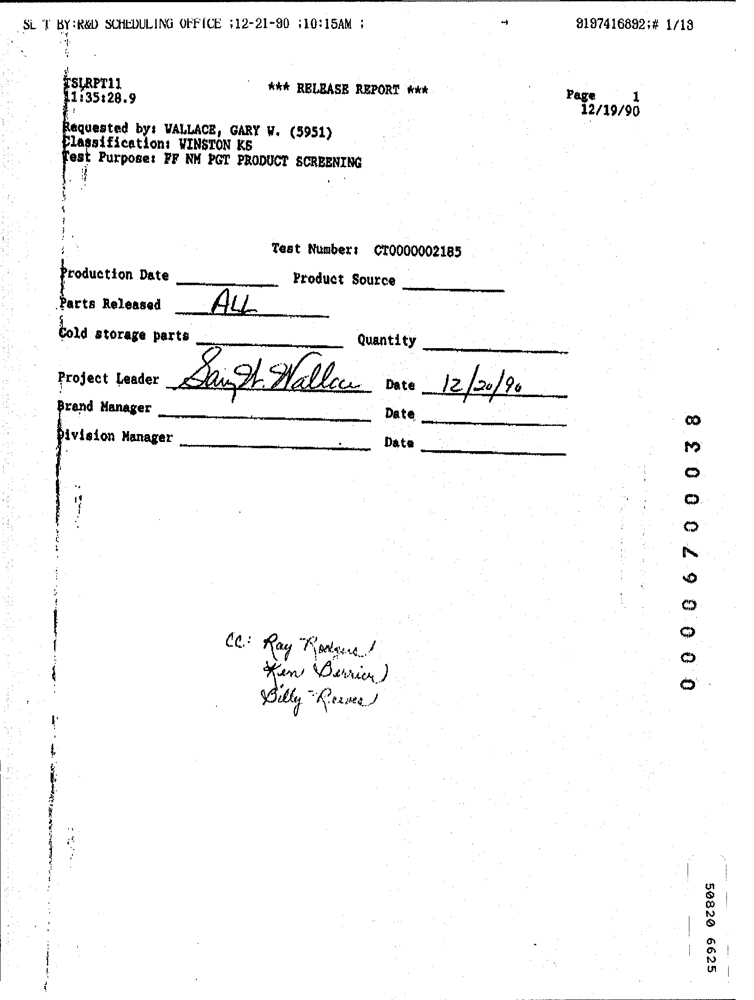 SE T BY:R&D SCHEDULING OFFICE ;12-21-90 ;10:15AM ; → 9197416892;# 1/13
TSLRPT11 *** RELEASE REPORT *** Page 1
11:35:28.9 12/19/90
Requested by: WALLACE, GARY W. (5951)
Classification: WINSTON KS
Test Purpose: FF NM PGT PRODUCT SCREENING
Test Number: CT0000002185
Production Date Product Source
Parts Released ALL
Cold storage parts Quantity
Project Leader Gary W. Wallace Date 12/20/90
Brand Manager Date
Division Manager Date
CC: Ray Rodgers
Ken Berrier
Billy Reeves
0000 6700038
50820 6625